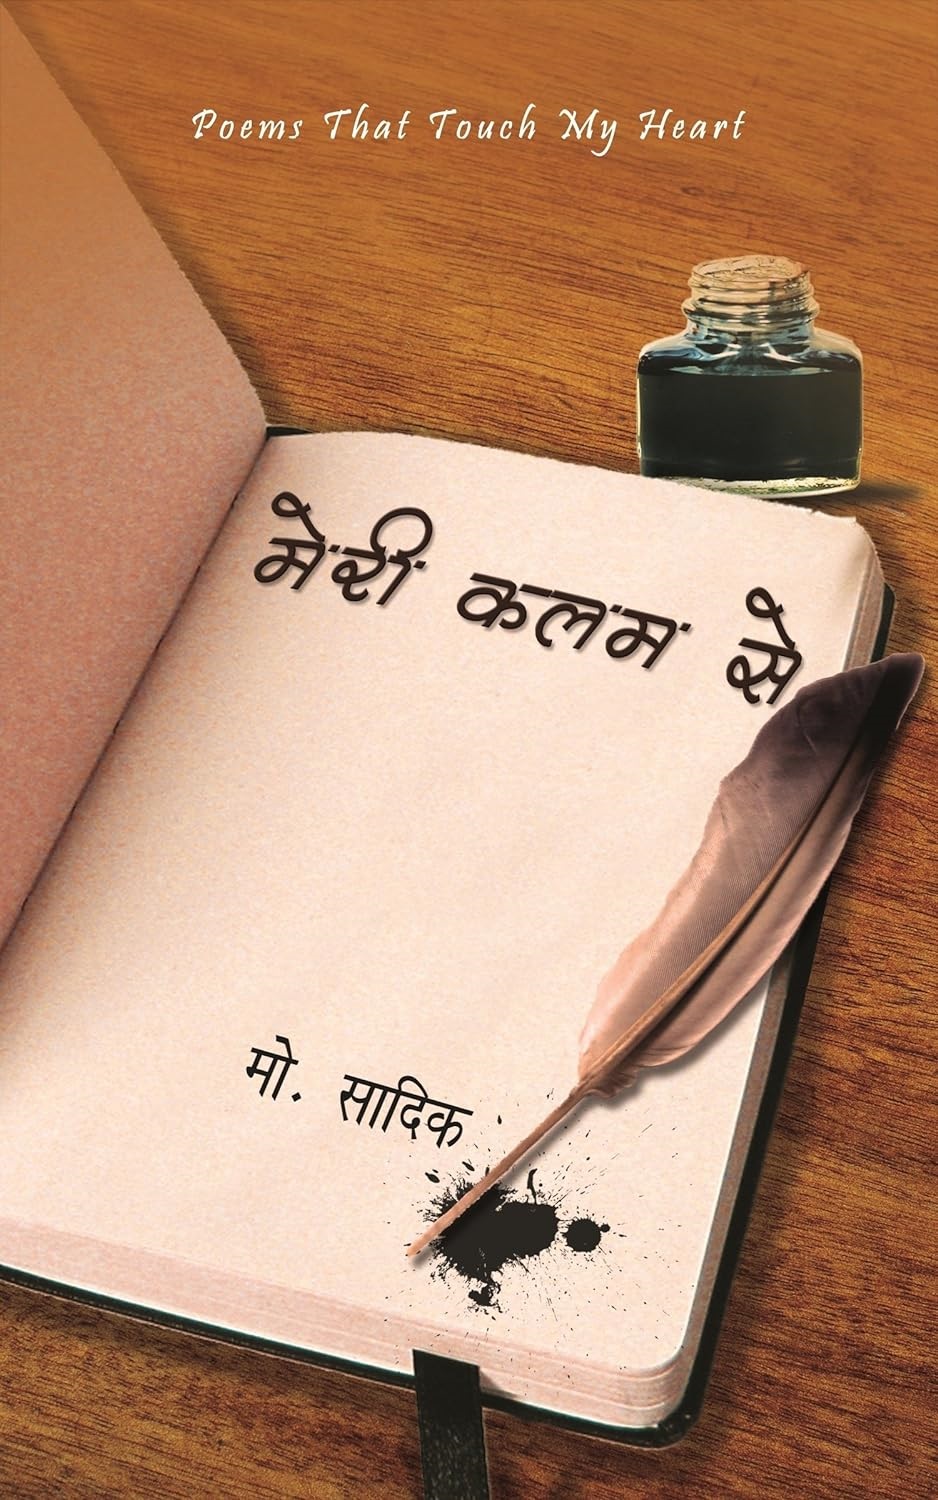 Poems That Touch My Heart
मेरी कलम से
मो. सादिक